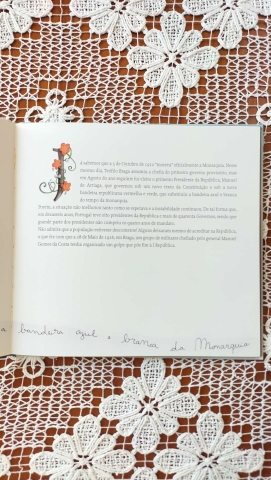 á sabemos que a 5 de Outubro de 1910 "morreu" oficialmente a Monarquia. Nesse
mesmo dia, Teófilo Braga assumiu a chefia do primeiro governo provisório, mas
em Agosto do ano seguinte foi eleito o primeiro Presidente da República, Manuel
de Arriaga, que governou sob um novo texto da Constituição e sob a nova
bandeira republicana vermelha e verde, que substituiu a bandeira azul e branca
do tempo da monarquia.
Porém, a situação não melhorou tanto como se esperava e a instabilidade continuou. De tal forma que,
em dezasseis anos, Portugal teve oito presidentes da República e mais de quarenta Governos, sendo que
grande parte dos presidentes não cumpriu os quatro anos de mandato.
Não admira que a população estivesse descontente! Alguns deixaram mesmo de acreditar na República,
o que fez com que a 28 de Maio de 1926, em Braga, um grupo de militares chefiado pelo general Manuel
Gomes da Costa tenha organizado um golpe que pôs fim à I República.
a bandeira azul e branca da Monarquia